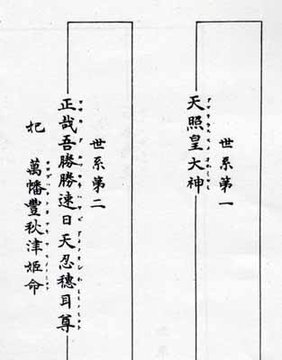 世系第一
天照皇大神
世系第二
正哉吾勝勝速日天忍穗耳尊
妃 萬幡豐秋津姫命